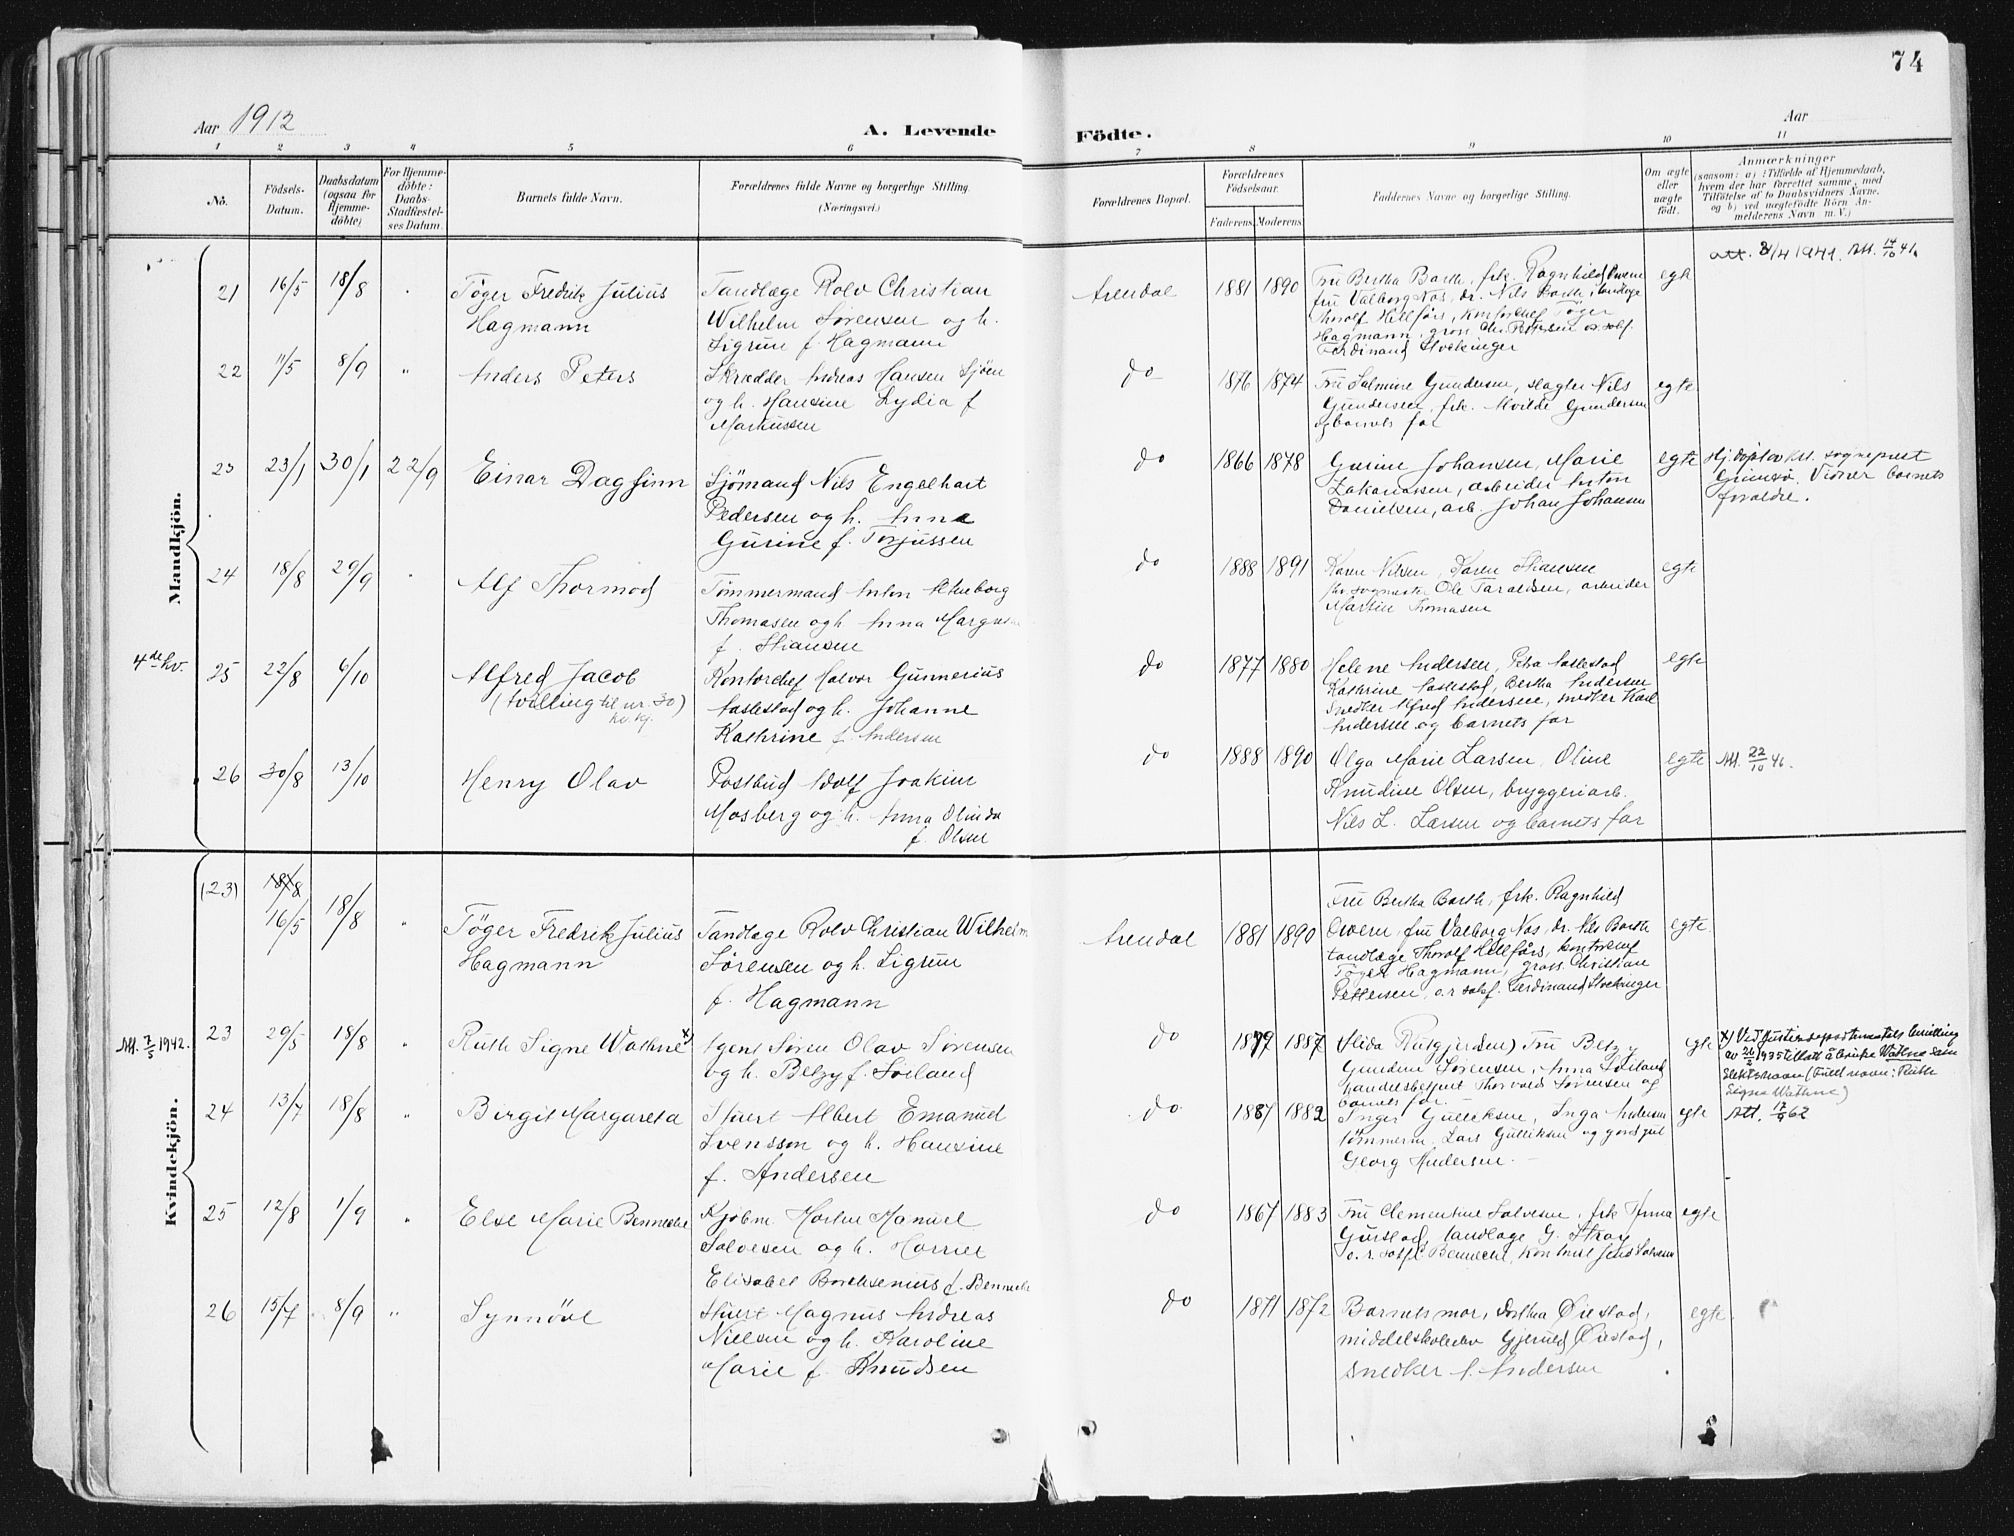 74
Aar 1912
A. Levende Födte.
Aar
1 2 3 4 5 6 7 8 9 10 11
No.
Födsels-Datum.
Daabsdatum (ogsaa for Hjemme-döbte)
For Hjemme-döbte: Daabs-Stadfæstel-ses Datum.
Barnets fulde Navn.
Forældrenes fulde Navne og borgerlige Stilling. (Næringsvei.)
Forældrenes Bopæl.
Forældrenes Födselsaar.
Faderens. Moderens.
Faddernes Navne og borgerlige Stilling.
Om ægte eller uægte födt.
Anmærkninger
(saasom: a) Tilfælde af Hjemmedaab, hvem der har forrettet samme, med Tilföielse af to Daabsvidners Navne. og b) ved uægtefödte Börn An-melderens Navn m. V.)
Mandkjön.
21 16/5 18/8 Tøger Fredrik Julius Hagmann
Tandlæge Rolv Christian
Wilhelm Sørensen og h.
Sigrun f. Hagmann
Arendal 1881 1890
Fru Bertha Barth, frk. Ragnhild
fru Valborg Næs, dr. Nils Barth, tandlæge
Thorolf Hellfårs, kontorchef Tøger
Hagmann, gross. Chr. Pettersen o.r.sakf.
Ferdinand Stockinger
egte
Att. 14/10 41.
22 11/5 8/9 " Anders Peters
Skrædder Andreas Hansen Sjøen
og h. Hansine Lydia f.
Markussen
do 1876 1874
Fru Salmine Gundersen, slagter Nils
Gundersen, frk. Gundersen
og barnets far
egte
23 23/1 30/1 22/9 Einar Dagfinn
Sjømand Nils Engelhart
Pedersen og h. Anna
Gurine f. Torjussen
do 1866 1878
Gurine Johansen, Marie
Zakariassen, arbeider Anton
Danielsen, arb. Johan Johansen
egte
Hj. døpt av kst. sogneprest
Grimsø. Vidner barnets
forældre.
24 18/8 29/9 Alf Thormod
Tømmermand Anton
Thomasen og h. Anna
f. Stiansen
do 1888 1891
Karen Nilsen, Karen Stiansen
Ole Taraldsen, arbeider
Martin Thomasen
egte
4de kv.
25 22/8 6/10 Alfred Jacob
(tvilling til nr. 30)
kv. kj.
Kontorchef Halvor Gunnerius
Aaslestad og h. Johanne
Kathrine f. Andersen
do 1877 1880
Helene Andersen, Petra Aaslestad
Kathrine Aaslestad, Bertha Andersen
Snedker Alfred Andersen, snedker Karl
Andersen og barnets far
egte
26 30/8 13/10 Henry Olav
Postbud Adolf Joakim
Mosberg og h. Anna Olinda
f. Olsen
do 1888 1890
Olga Marie Larsen, Oline
Knudine Olsen, bryggeriarb.
Nils L. Larsen og barnets far
egte
Att. 22/10 46.
Kvindekjön.
(23) 18/8
16/5 18/8 " Tøger Fredrik Julius
Hagmann
Tandlæge Rolv Christian Wilhelm
Sørensen og h. Sigrun
f. Hagmann
Arendal 1881 1890
Fru Bertha Barth, frk. Ragnhild
fru Valborg Næs, dr. Nils Barth
tandlæge Thorolf Hellfårs, kontorchef
Tøger Hagmann, gross. Christian
Pettersen, o.r.sakf. Ferdinand Stockinger
egte.
Att. 7/5 1942.
23 29/5 18/8 " Ruth Signe Wathne x)
Agent Søren Olav Sørensen
og h. Betzy f. Sørland
do 1879 1887
Fru Betzy
Gundine Sørensen, Anna
handelsbetjent Thorvald Sørensen og
barnets far.
egte
x) Ved Justisdepartementets bevilling
av 26/2 1935 tillatt å bruke Wathne som
slektsnavn (Fullt navn: Ruth
Signe Wathne)
24 13/7 18/8 " Birgit Margareta
Stuert Albert Emanuel
Svensson og h. Hansine
f. Andersen
do 1887 1882
Inger Gulliksen, Inga Andersen
tømmerm. Lars Gulliksen og
Georg Andersen.
egte
Att. 17/9 62
25 12/8 1/9 " Else Marie Bennecke
Kjøbm. Morten Manuel
Salvesen og h. Harriet
Elisabet Borchsenius f. Bennecke
do 1867 1883
Fru Clementine Salvesen, frk. Anna
tandlæge G. Stray
o.r.sakf. Bennecke, Jens Salvesen
egte
26 15/7 8/9 " Synnöve
Stuert Magnus Andreas
Nielsen og h. Karoline
Marie f. Knudsen
do 1871 1872
Barnets mor, Dorthea Øiestad,
middelskoleelev Øiestad,
snedker A. Andersen
egte.